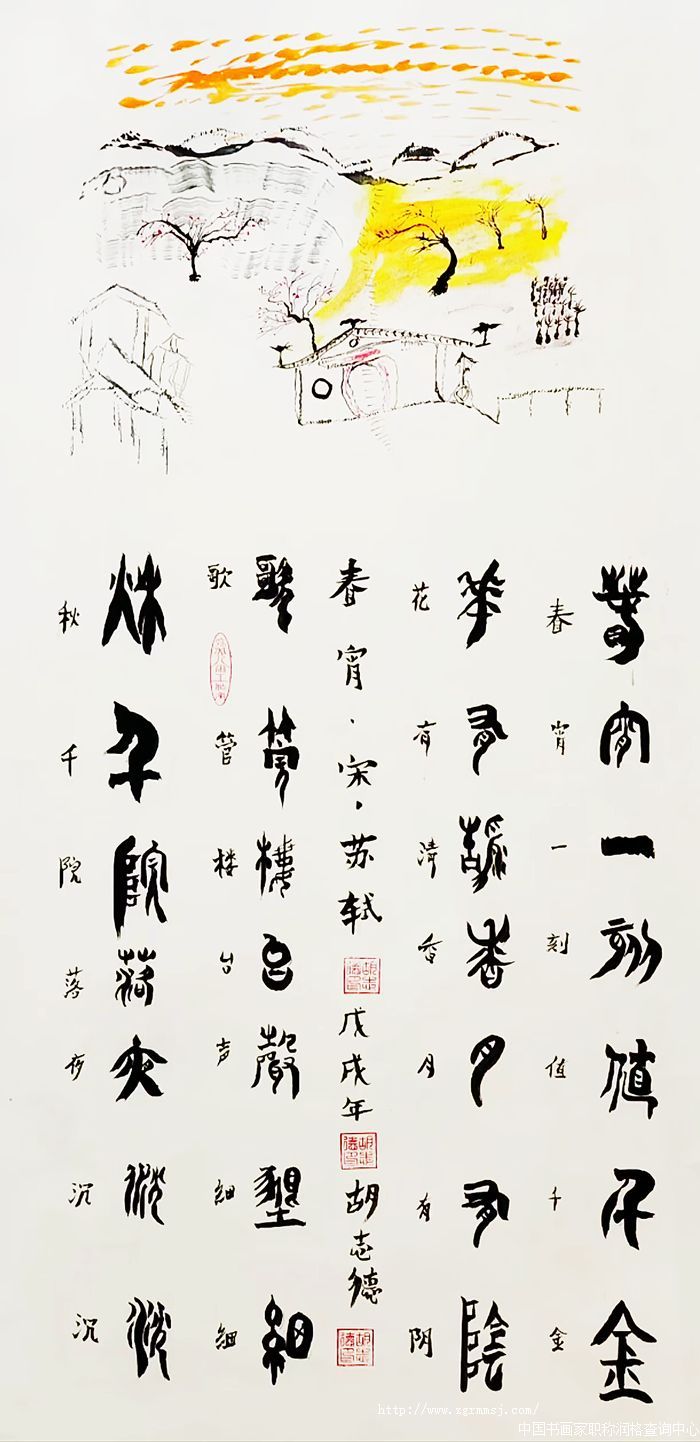 春宵一刻值千金
春宵一刻值千金
華有清香月有陰
花有清香月有阴
春宵·宋·苏轼 戊戌年 胡志德
歌管樓台聲細
歌管楼台声细细
秋千院落夜沉沉
秋千院落夜沉沉
http://www.zgrmmsj.com/
中国书画家职称润格查询中心